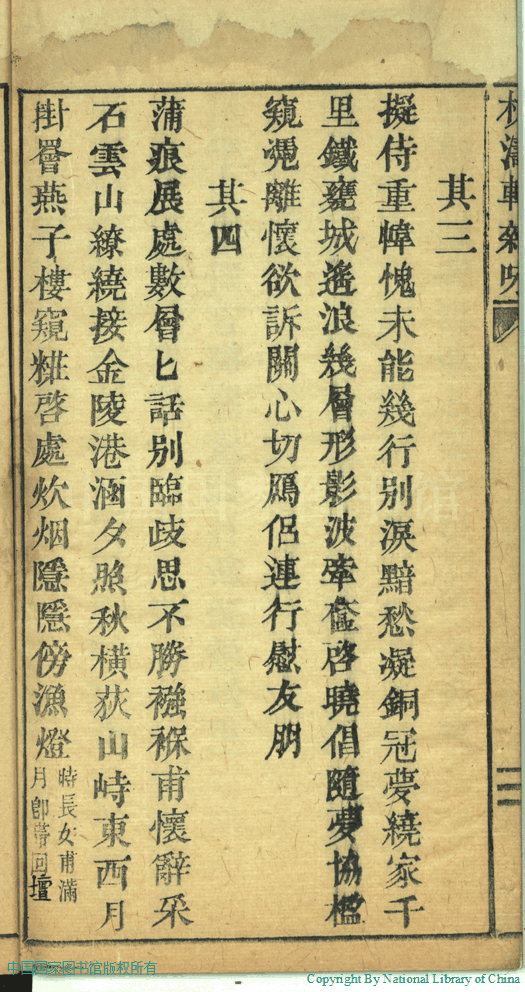 松濤軒雜咏
其三
擬侍重幃愧未能幾行別淚黯愁凝銅冠夢繞家千
里鐵甕城遙浪幾層形影波牽奩啓曉倡隨夢協檻
窺凴離懷欲訴關心切鴈侶連行慰友朋
其四
蒲痕展處數層匕話別臨歧思不勝襁褓甫懷辭采
石雲山繚繞接金陵港涵夕照秋橫荻山峙東西月
掛罾燕子樓窺糚啓處炊烟隱隱傍漁燈
時長女甫滿
月卽帶回壇
二
中国国家图书馆版权所有
Copyright By National Library of China